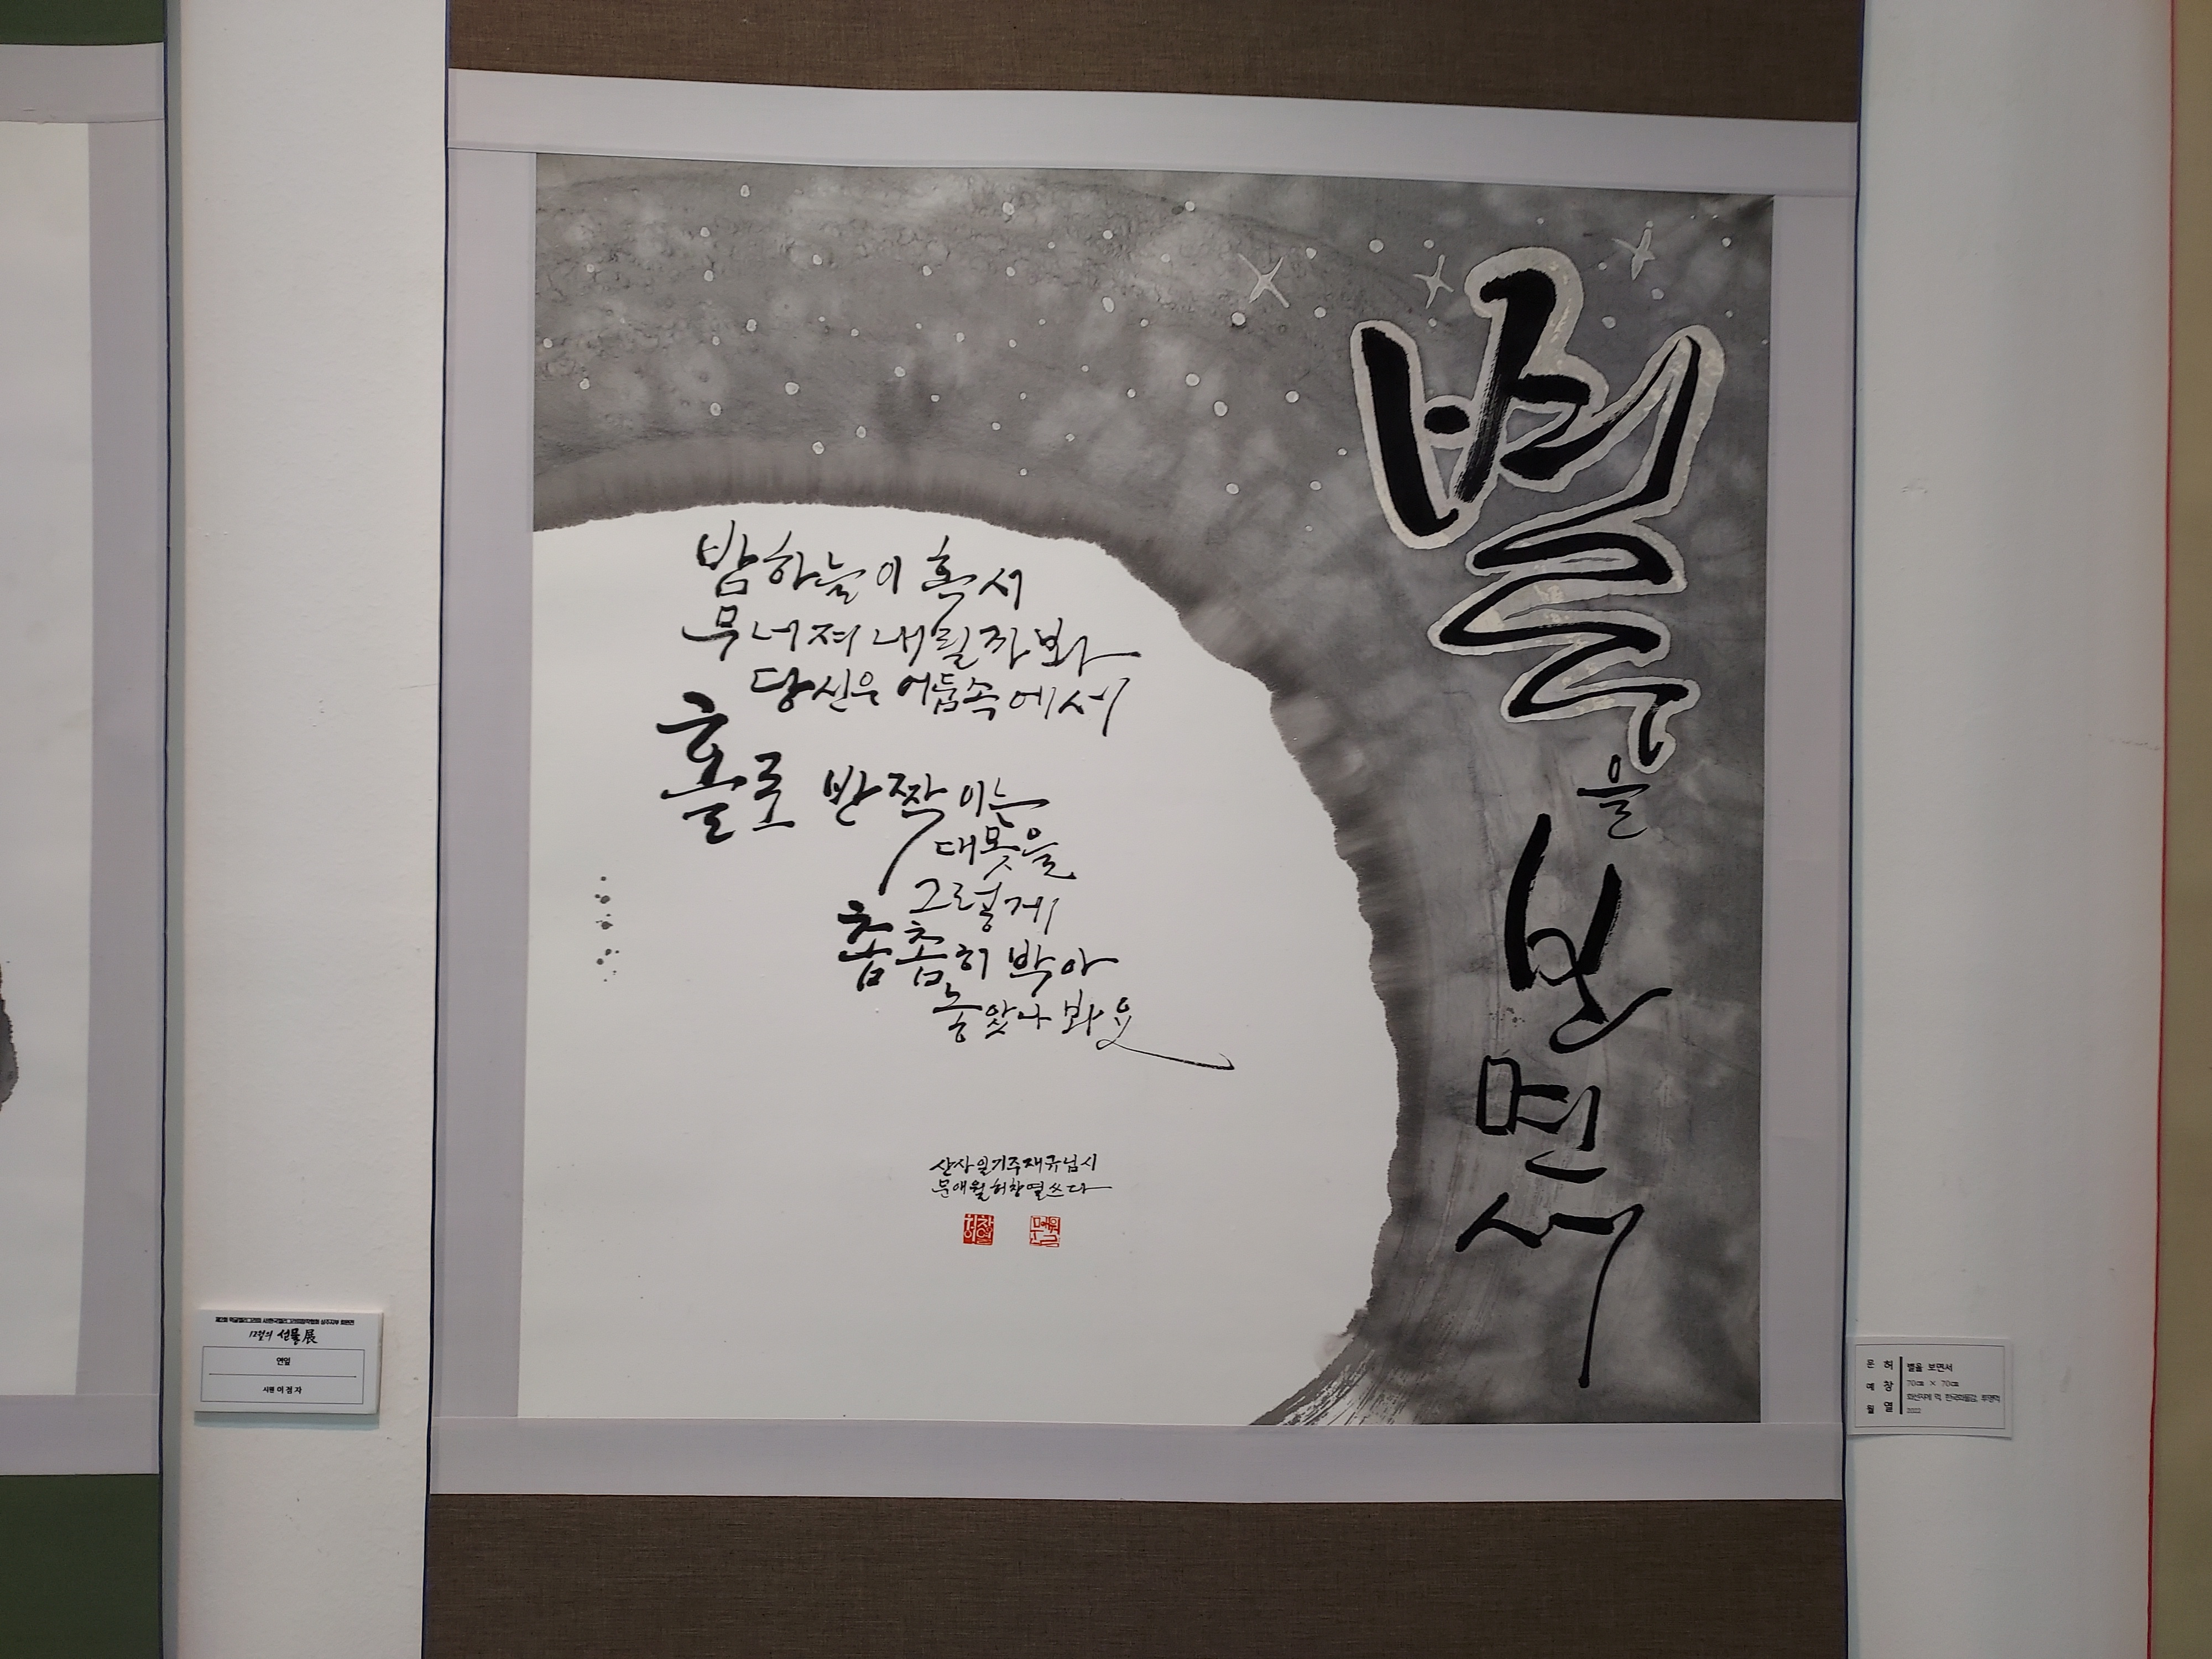 별을 보면서
밤하늘이 혹시
무너져 내릴까 봐
당신은 어둠속에서
홀로 반짝이는
대못을
그렇게
촘촘히 박아
놓았나 봐요
산사일기주재규님시
문애월허창열쓰다
12월의 선물展
연잎
시원 이점자
별을 보면서
70㎝ × 70㎝